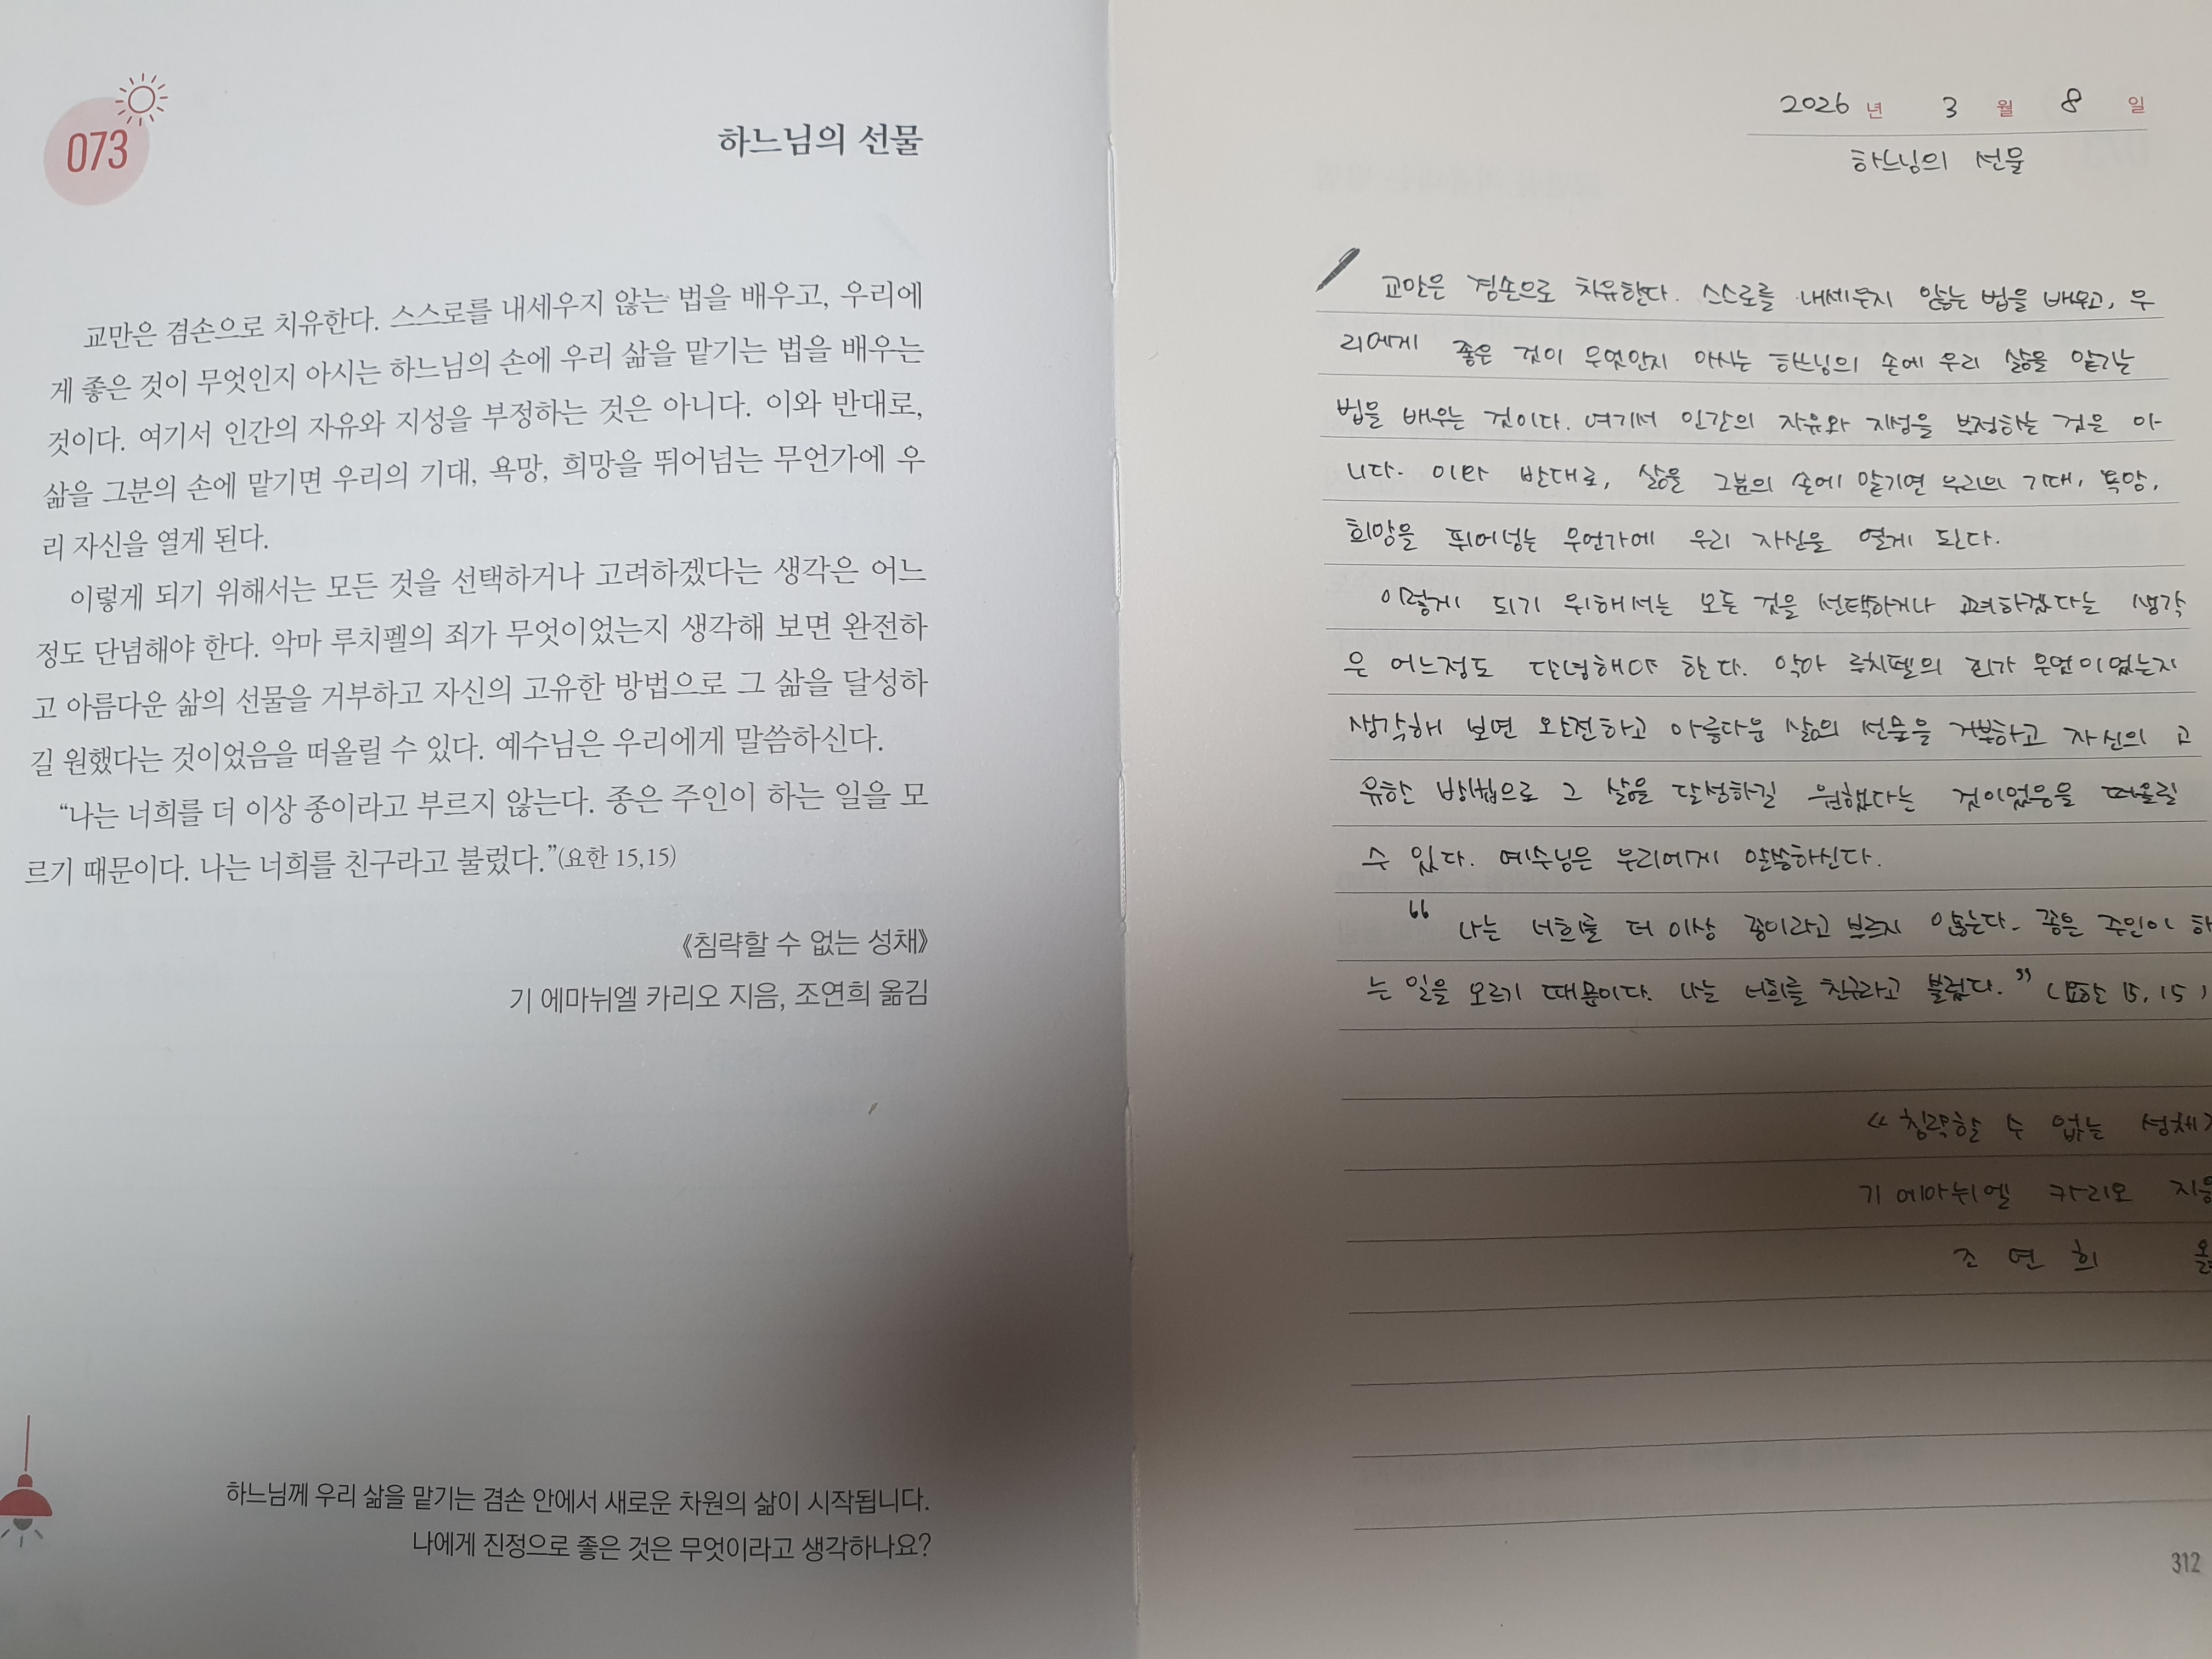 073
하느님의 선물
교만은 겸손으로 치유한다. 스스로를 내세우지 않는 법을 배우고, 우리에
게 좋은 것이 무엇인지 아시는 하느님의 손에 우리 삶을 맡기는 법을 배우는
것이다. 여기서 인간의 자유와 지성을 부정하는 것은 아니다. 이와 반대로,
삶을 그분의 손에 맡기면 우리의 기대, 욕망, 희망을 뛰어넘는 무언가에 우
리 자신을 열게 된다.
이렇게 되기 위해서는 모든 것을 선택하거나 고려하겠다는 생각은 어느
정도 단념해야 한다. 악마 루치펠의 죄가 무엇이었는지 생각해 보면 완전하
고 아름다운 삶의 선물을 거부하고 자신의 고유한 방법으로 그 삶을 달성하
길 원했다는 것이었음을 떠올릴 수 있다. 예수님은 우리에게 말씀하신다.
“나는 너희를 더 이상 종이라고 부르지 않는다. 종은 주인이 하는 일을 모
르기 때문이다. 나는 너희를 친구라고 불렀다.”(요한 15,15)
《침략할 수 없는 성채》
기 에마뉘엘 카리오 지음, 조연희 옮김
하느님께 우리 삶을 맡기는 겸손 안에서 새로운 차원의 삶이 시작됩니다.
나에게 진정으로 좋은 것은 무엇이라고 생각하나요?
2026 년 3 월 8 일
하느님의 선물
교만은 겸손으로 치유한다. 스스로를 내세우지 않는 법을 배우고, 우
리에게 좋은 것이 무엇인지 아시는 하느님의 손에 우리 삶을 맡기는
법을 배우는 것이다. 여기서 인간의 자유와 지성을 부정하는 것은 아-
니다. 이와 반대로, 삶을 그분의 손에 맡기면 우리의 기대, 욕망,
희망을 뛰어넘는 무언가에 우리 자신을 열게 된다.
이렇게 되기 위해서는 모든 것을 선택하거나 고려하겠다는 생각
은 어느정도 단념해야 한다. 악마 루치펠의 죄가 무엇이었는지
생각해 보면 완전하고 아름다운 삶의 선물을 거부하고 자신의 고
유한 방법으로 그 삶을 달성하길 원했다는 것이었음을 떠올릴
수 있다. 예수님은 우리에게 말씀하신다.
“ 나는 너희를 더 이상 종이라고 부르지 않는다. 종은 주인이 하
는 일을 모르기 때문이다. 나는 너희를 친구라고 불렀다.” (요한 15, 15)
《 침략할 수 없는 성채
기 에마뉘엘 카리오 지음
조 연 희
312